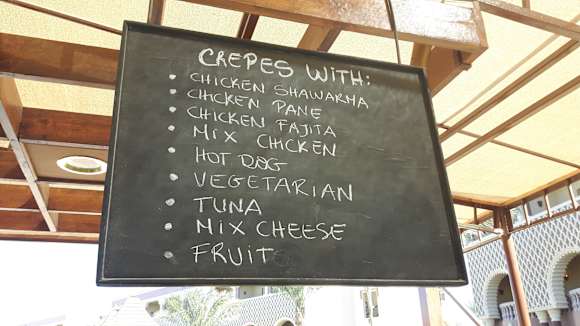 CREPES WITH:
• CHICKEN SHAWARMA
• CHICKEN PANE
• CHICKEN FAJITA
• MIX CHICKEN
• HOT DOG
• VEGETARIAN
• TUNA
• MIX CHEESE
• FRUIT